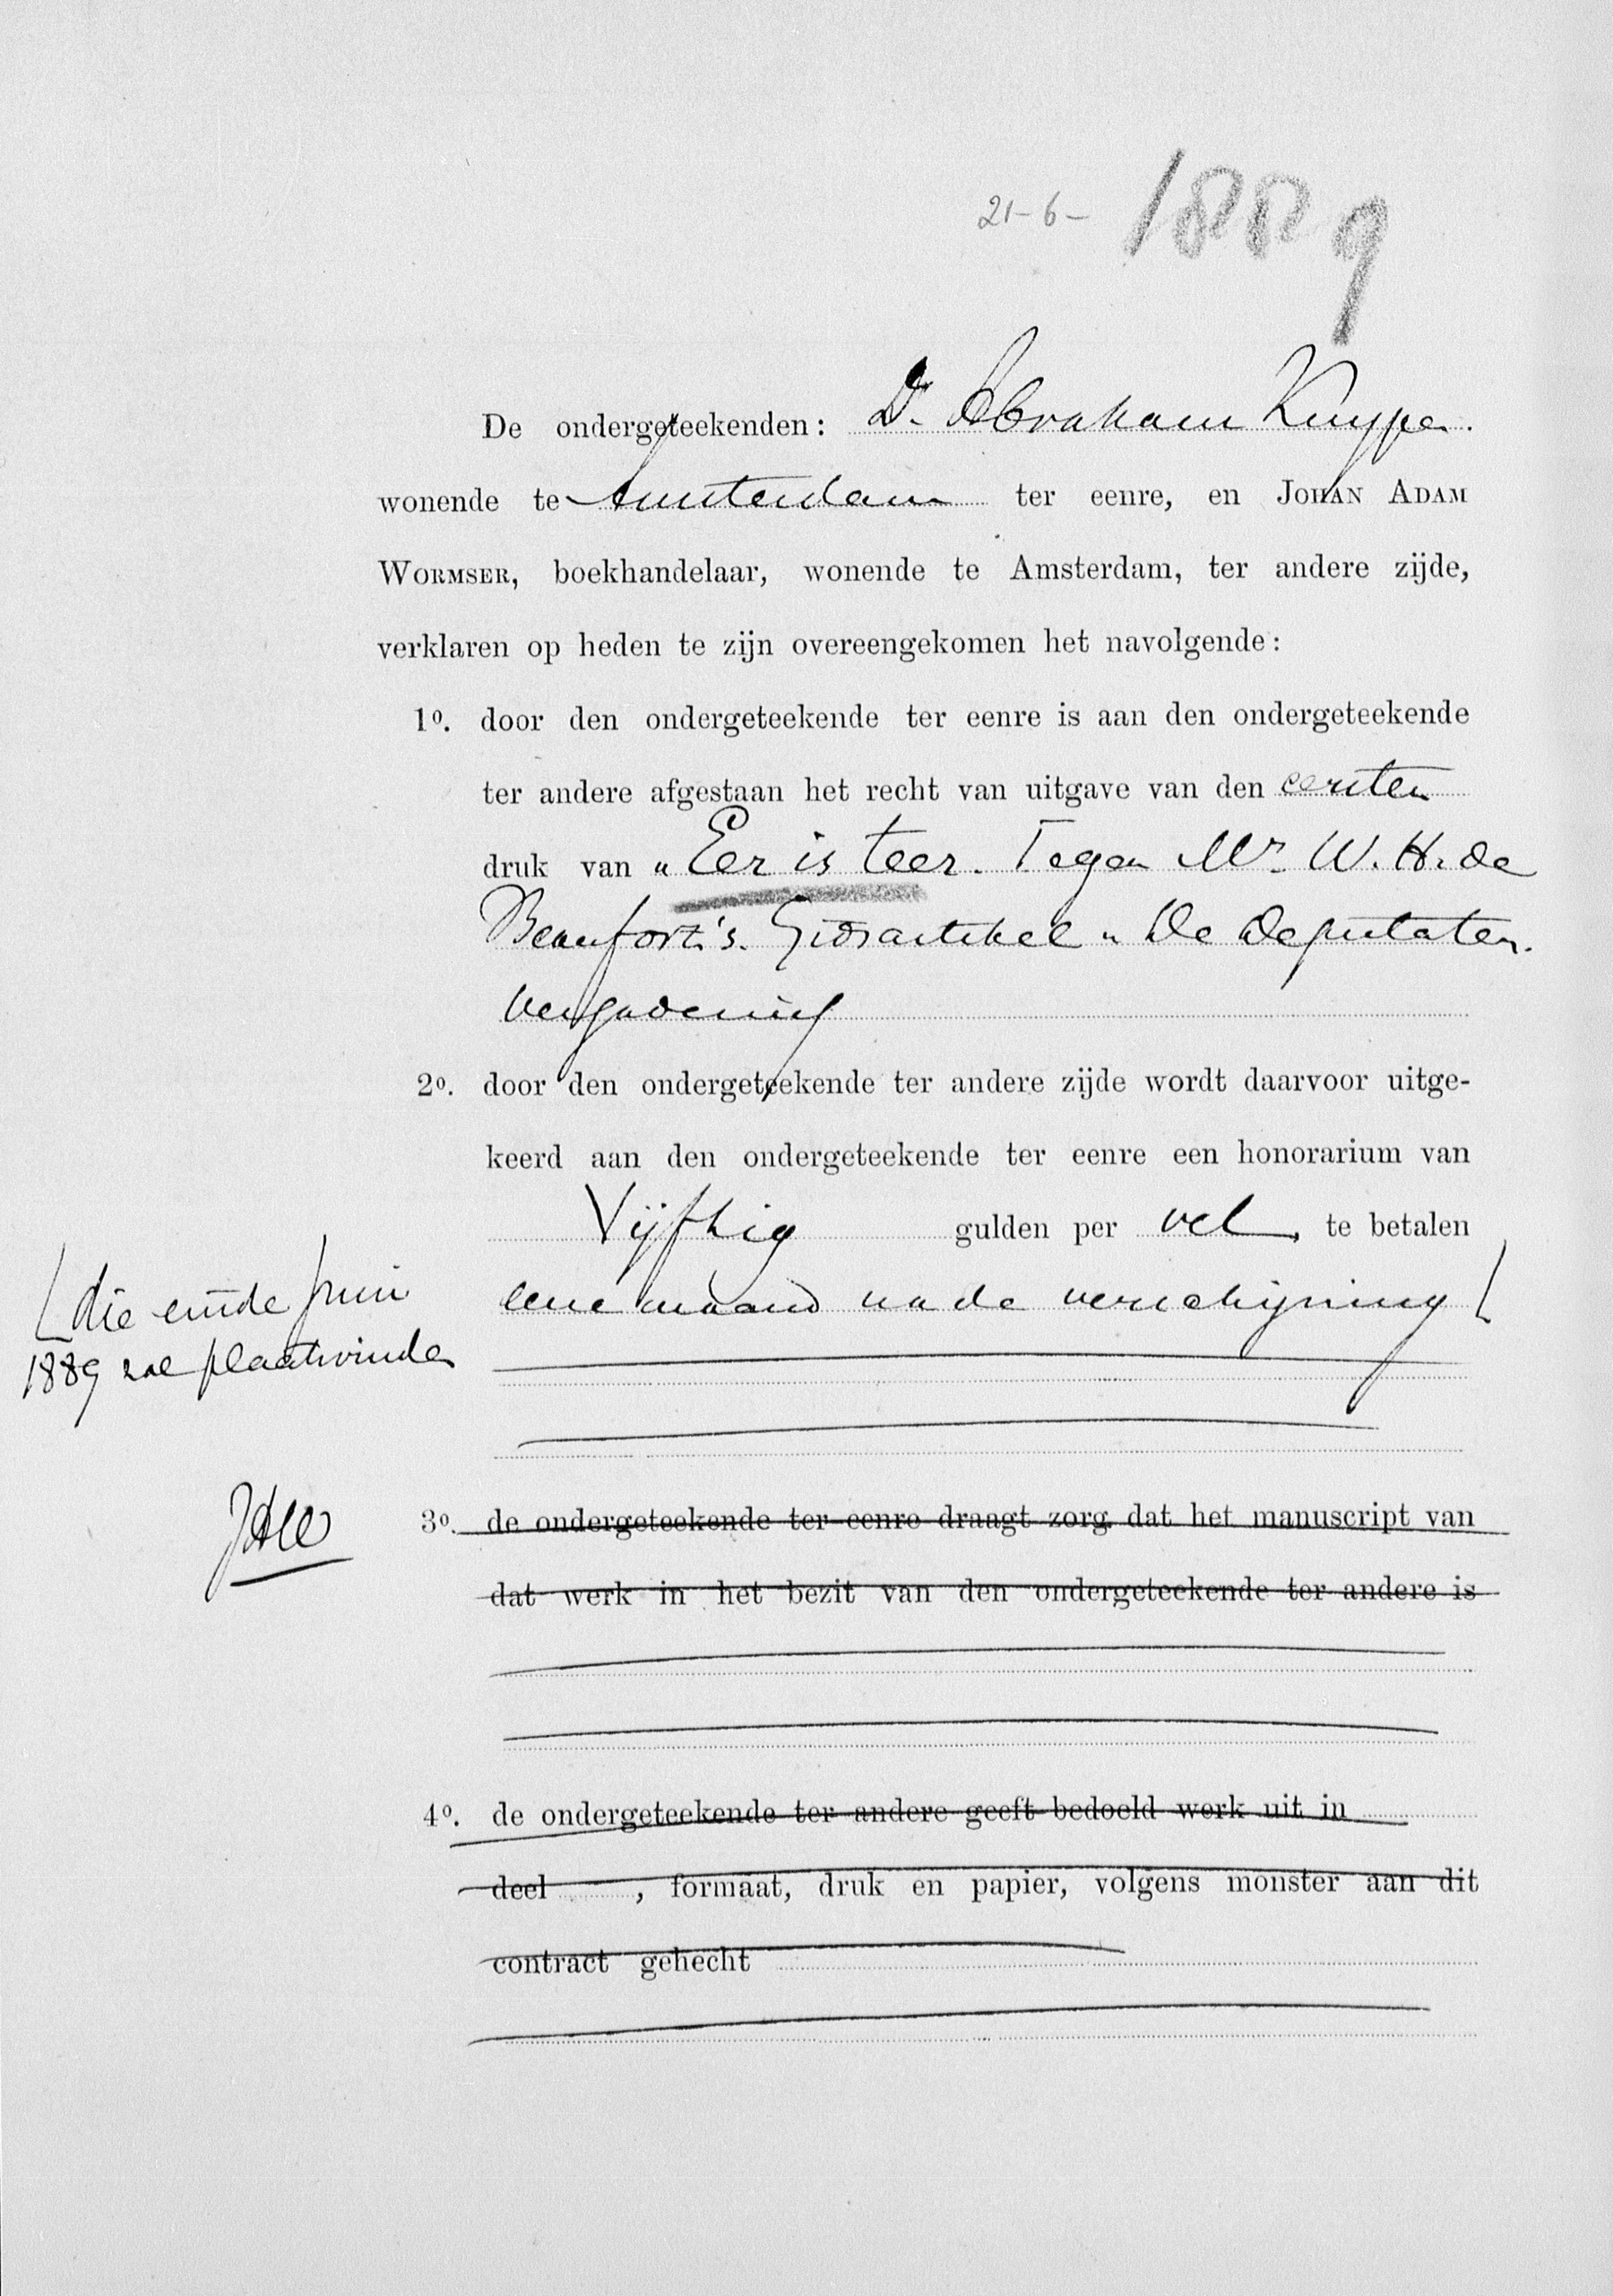 21-6- 1889
De ondergeteekenden: Dr. Abraham Kuyper.
wonende te Amsterdam ter eenre, en JOHAN ADAM
WORMSER, boekhandelaar, wonende te Amsterdam, ter andere zijde,
verklaren op heden te zijn overeengekomen het navolgende:
1º. door den ondergeteekende ter eenre is aan den ondergeteekende
ter andere afgestaan het recht van uitgave van den eersten
druk van „Eer is teer. Tegen Mr. W. H. de
Beaufort's. Gidsartikel „De Deputaten.
vergadering
2º. door den ondergeteekende ter andere zijde wordt daarvoor uitge-
keerd aan den ondergeteekende ter eenre een honorarium van
Vijftig gulden per vel, te betalen
eene maand na de verschijning
die einde Juni
1889 zal plaatsvinden
3º. de ondergeteekende ter eenre draagt zorg dat het manuscript van
dat werk in het bezit van den ondergeteekende ter andere is
4º. de ondergeteekende ter andere geeft bedoeld werk uit in
deel , formaat, druk en papier, volgens monster aan dit
contract gehecht